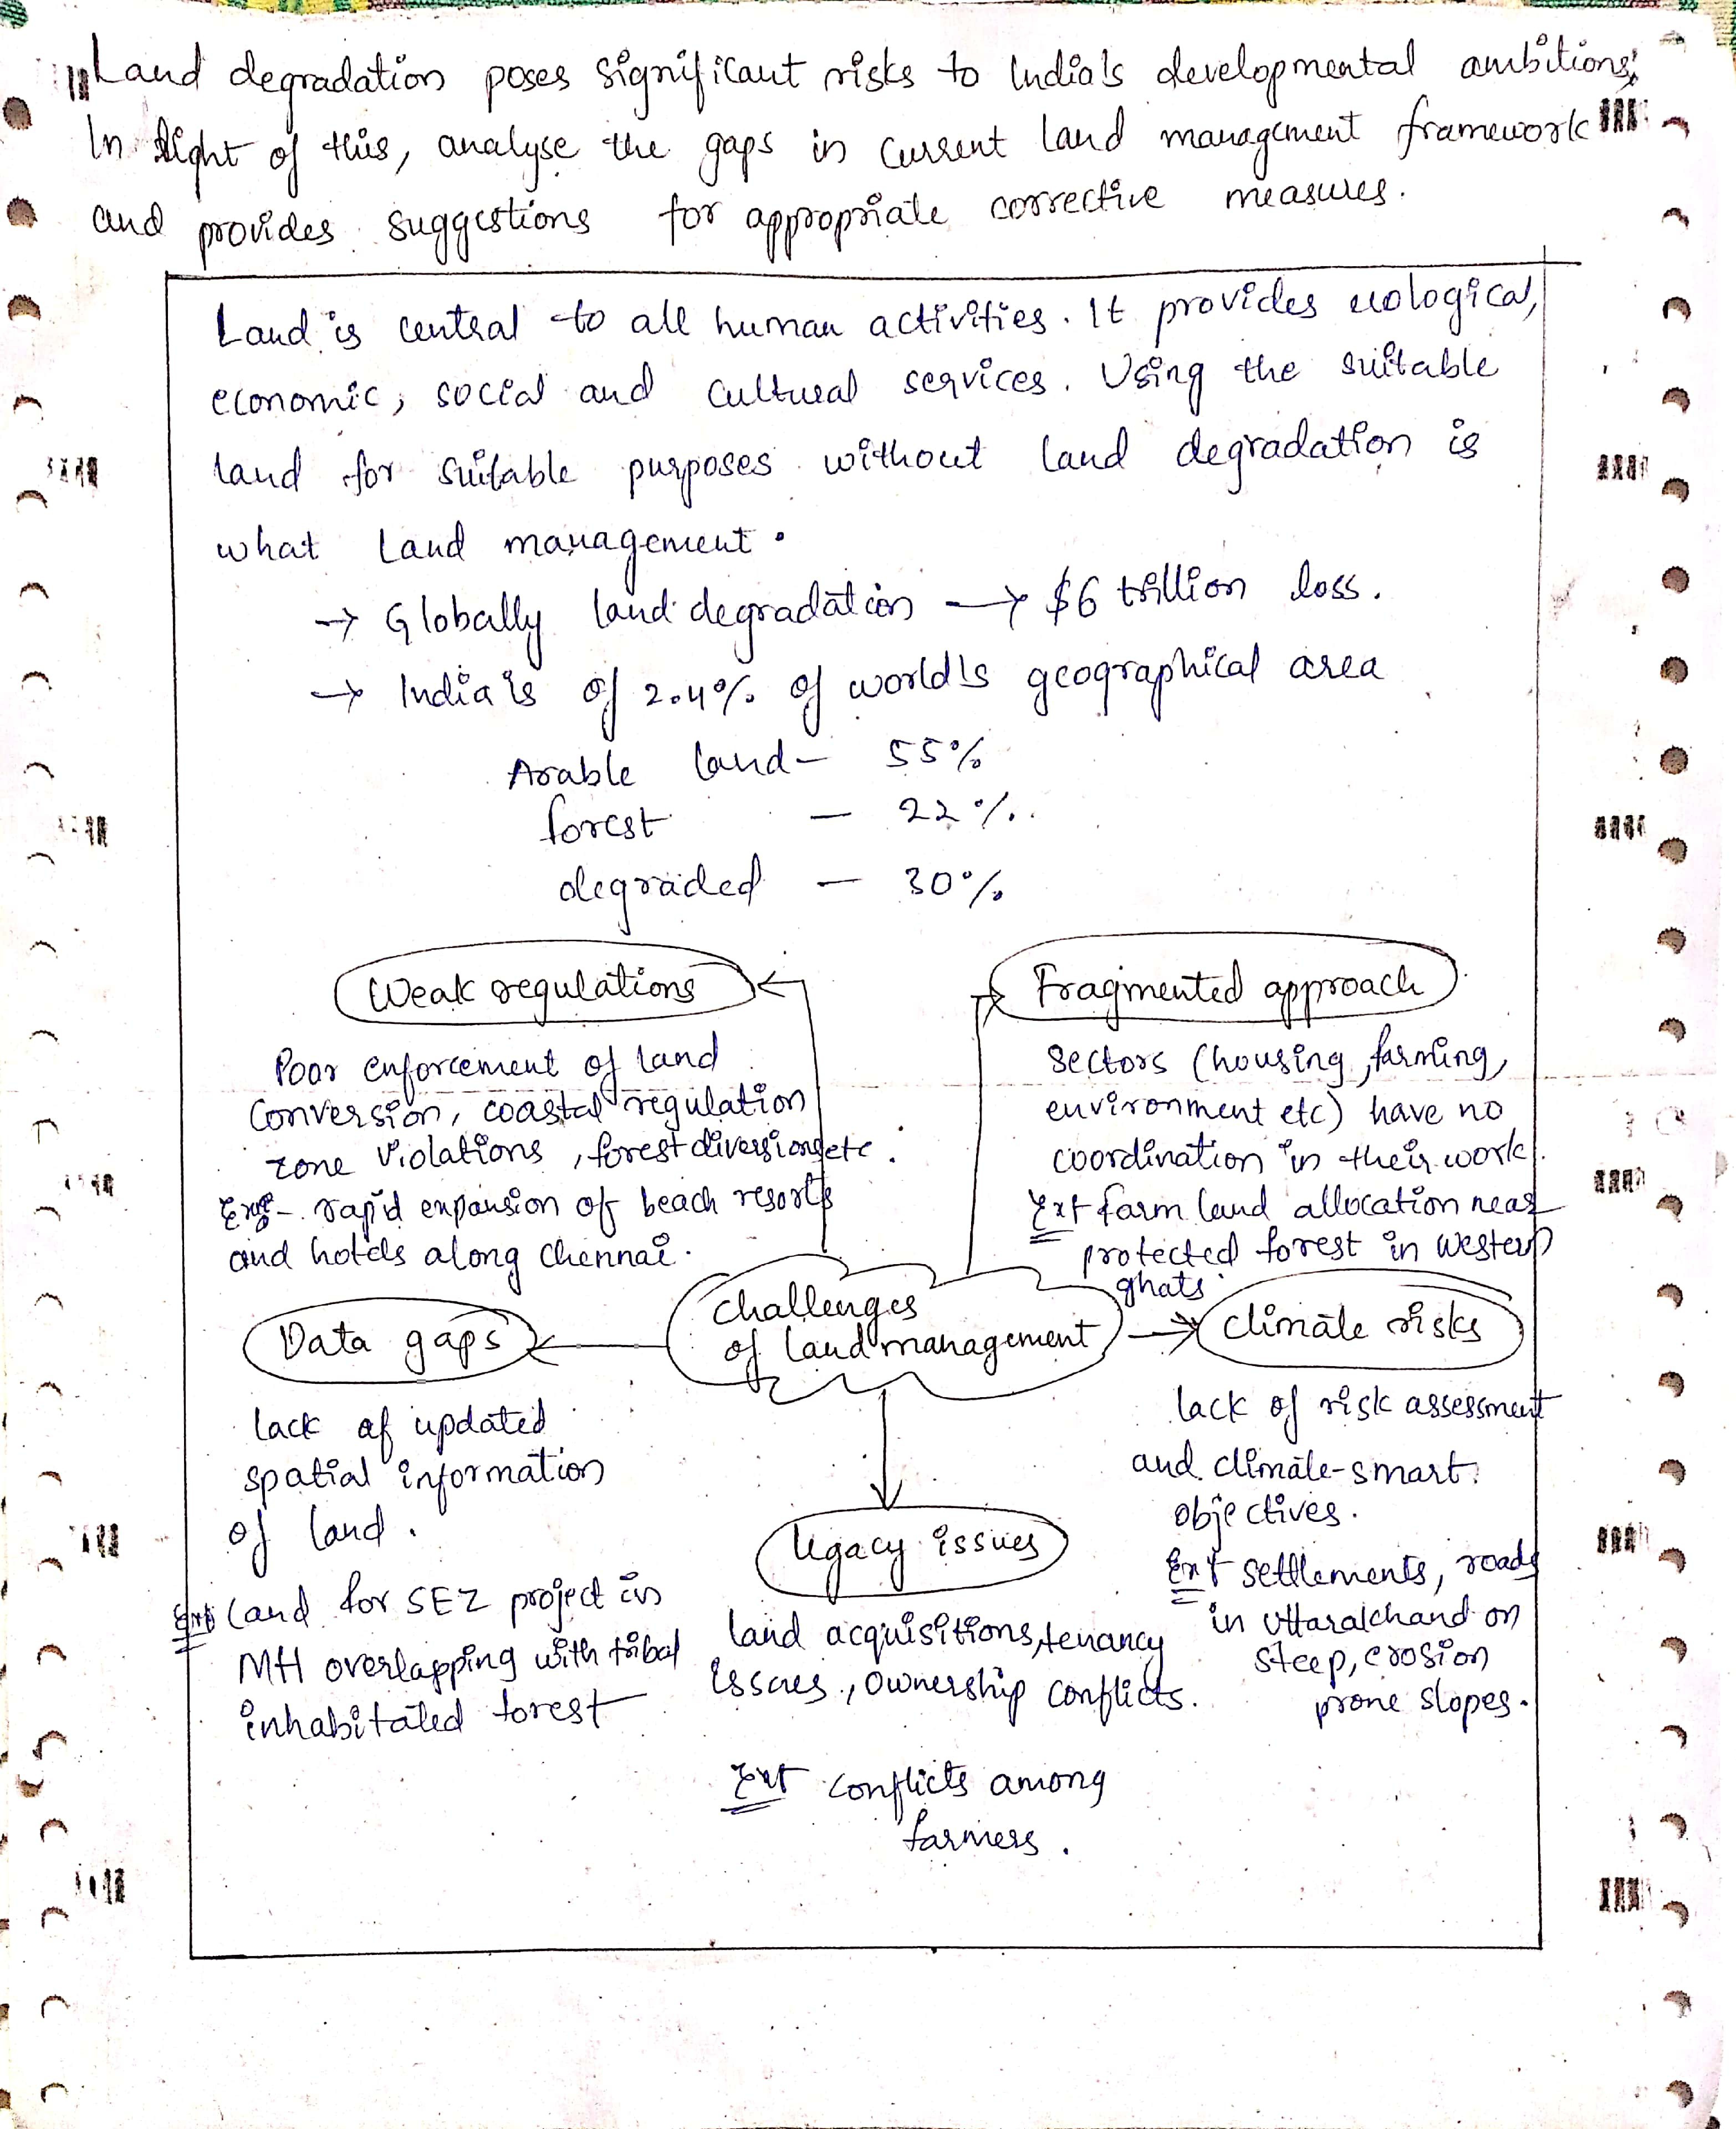 Land degradation poses significant risks to India's developmental ambitions;
In light of this, analyse the gaps in current land management framework
and provides suggestions for appropriate corrective measures.
Land is central to all human activities. It provides ecological,
economic, social and cultural services. Using the suitable
land for suitable purposes without land degradation is
what Land management.
→ Globally land degradation → $6 trillion loss.
→ India is of 2.4% of world's geographical area
Arable land - 55%
forest - 22%.
degraded - 30%
Weak regulations
Poor enforcement of land
conversion, coastal regulation
zone violations, forest diversions etc.
Eng - rapid expansion of beach resorts
and hotels along Chennai.
Fragmented approach
Sectors (housing, farming,
environment etc) have no
coordination in their work.
Ex: farm land allocation near
protected forest in western
ghats.
challenges
of land management
Data gaps
lack of updated
spatial information
of land.
Ex: land for SEZ project in
MH overlapping with tribal
inhabitated forest
climate risks
lack of risk assessment
and climate-smart
objectives.
Ex: settlements, roads
in Uttarakhand on
steep, erosion
prone slopes.
legacy issues
land acquisitions, tenancy
issues, ownership conflicts.
Ex: conflicts among
farmers.